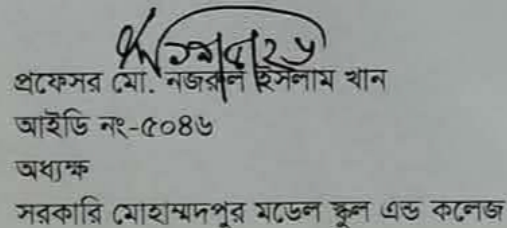 প্রফেসর মো. নজরুল ইসলাম খান
আইডি নং-৫০৪৬
অধ্যক্ষ
সরকারি মোহাম্মদপুর মডেল স্কুল এন্ড কলেজ